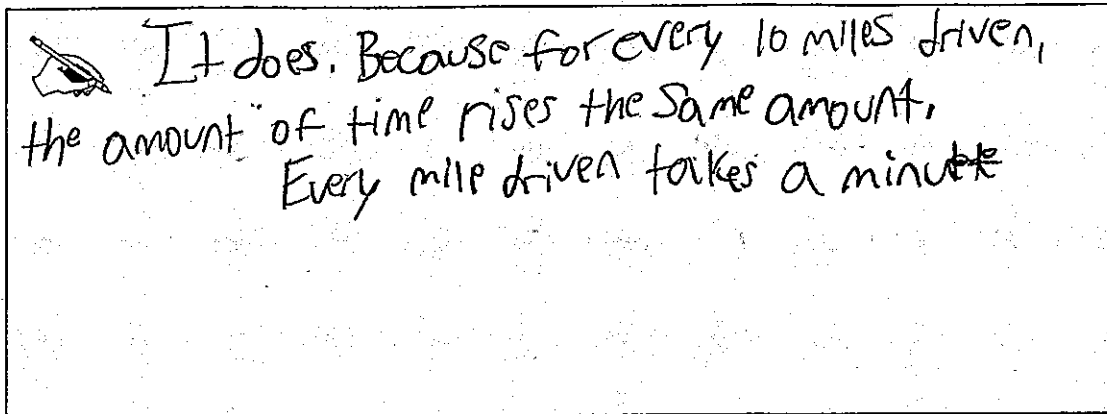 It does. Because for every 10 miles driven,
the amount of time rises the same amount.
Every mile driven takes a minute